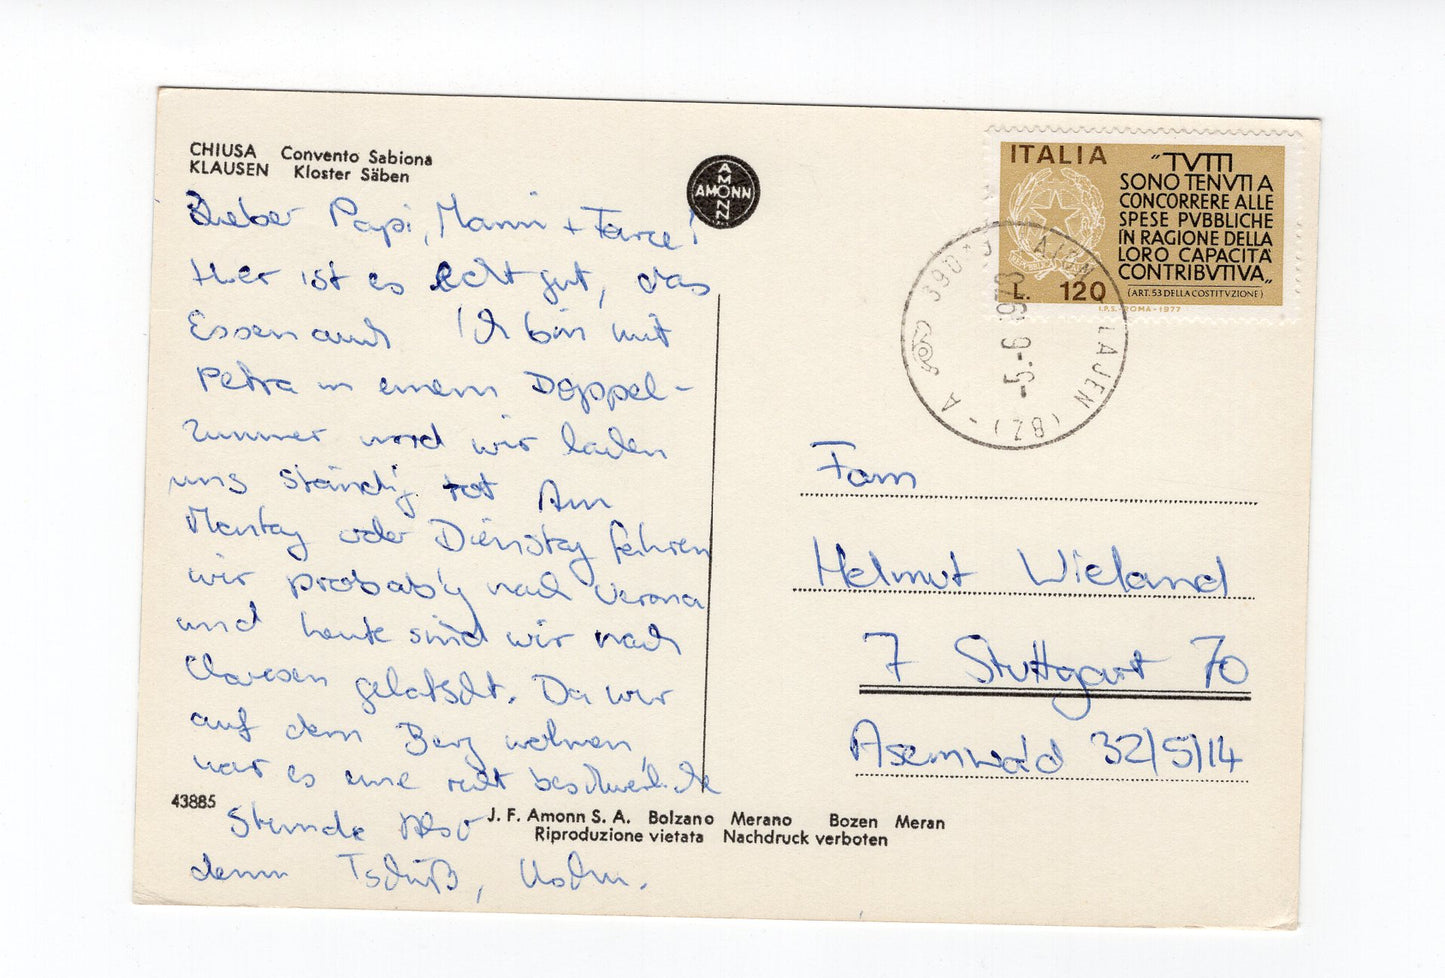 CHIUSA Convento Sabiona
KLAUSEN Kloster Säben
AMONN
AMONN
Lieber Papi, Mami +
Hier ist es echt gut, das
Essen auch Ich bin mit
Petra in einem Doppel-
zimmer und wir laden
uns ständig tot Am
Montag oder Dienstag fahren
wir probab'ly nach Verona
und heute sind wir nach
Clausen gelatscht. Da wir
auf dem Berg wohnen
war es eine recht beschwerliche
Stunde Also
denn Tschüß,
43885
J. F. Amonn S. A. Bolzano Merano Bozen Meran
Riproduzione vietata Nachdruck verboten
ITALIA
L. 120
"TVTTI
SONO TENVTI A
CONCORRERE ALLE
SPESE PVBBLICHE
IN RAGIONE DELLA
LORO CAPACITÀ
CONTRIBVTIVA„
(ART. 53 DELLA COSTITVZIONE)
I.P.S. - ROMA - 1977
LAJEN (BZ) - A
-5.-6
Fam
Helmut Wieland
7 Stuttgart 70
Asemwald 32/5/14